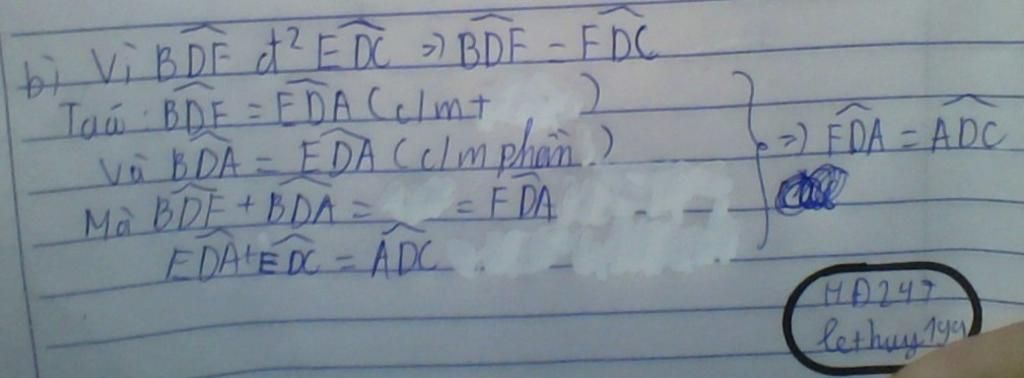 b) Vì BDF đ² EDC => BDF = EDC
Ta có: BDF = EDA (c/m t
Và BDA = EDA (c/m phần )
=> FDA = ADC
Mà BDF + BDA = = FDA
EDA + EDC = ADC
HD247
lethuy1994